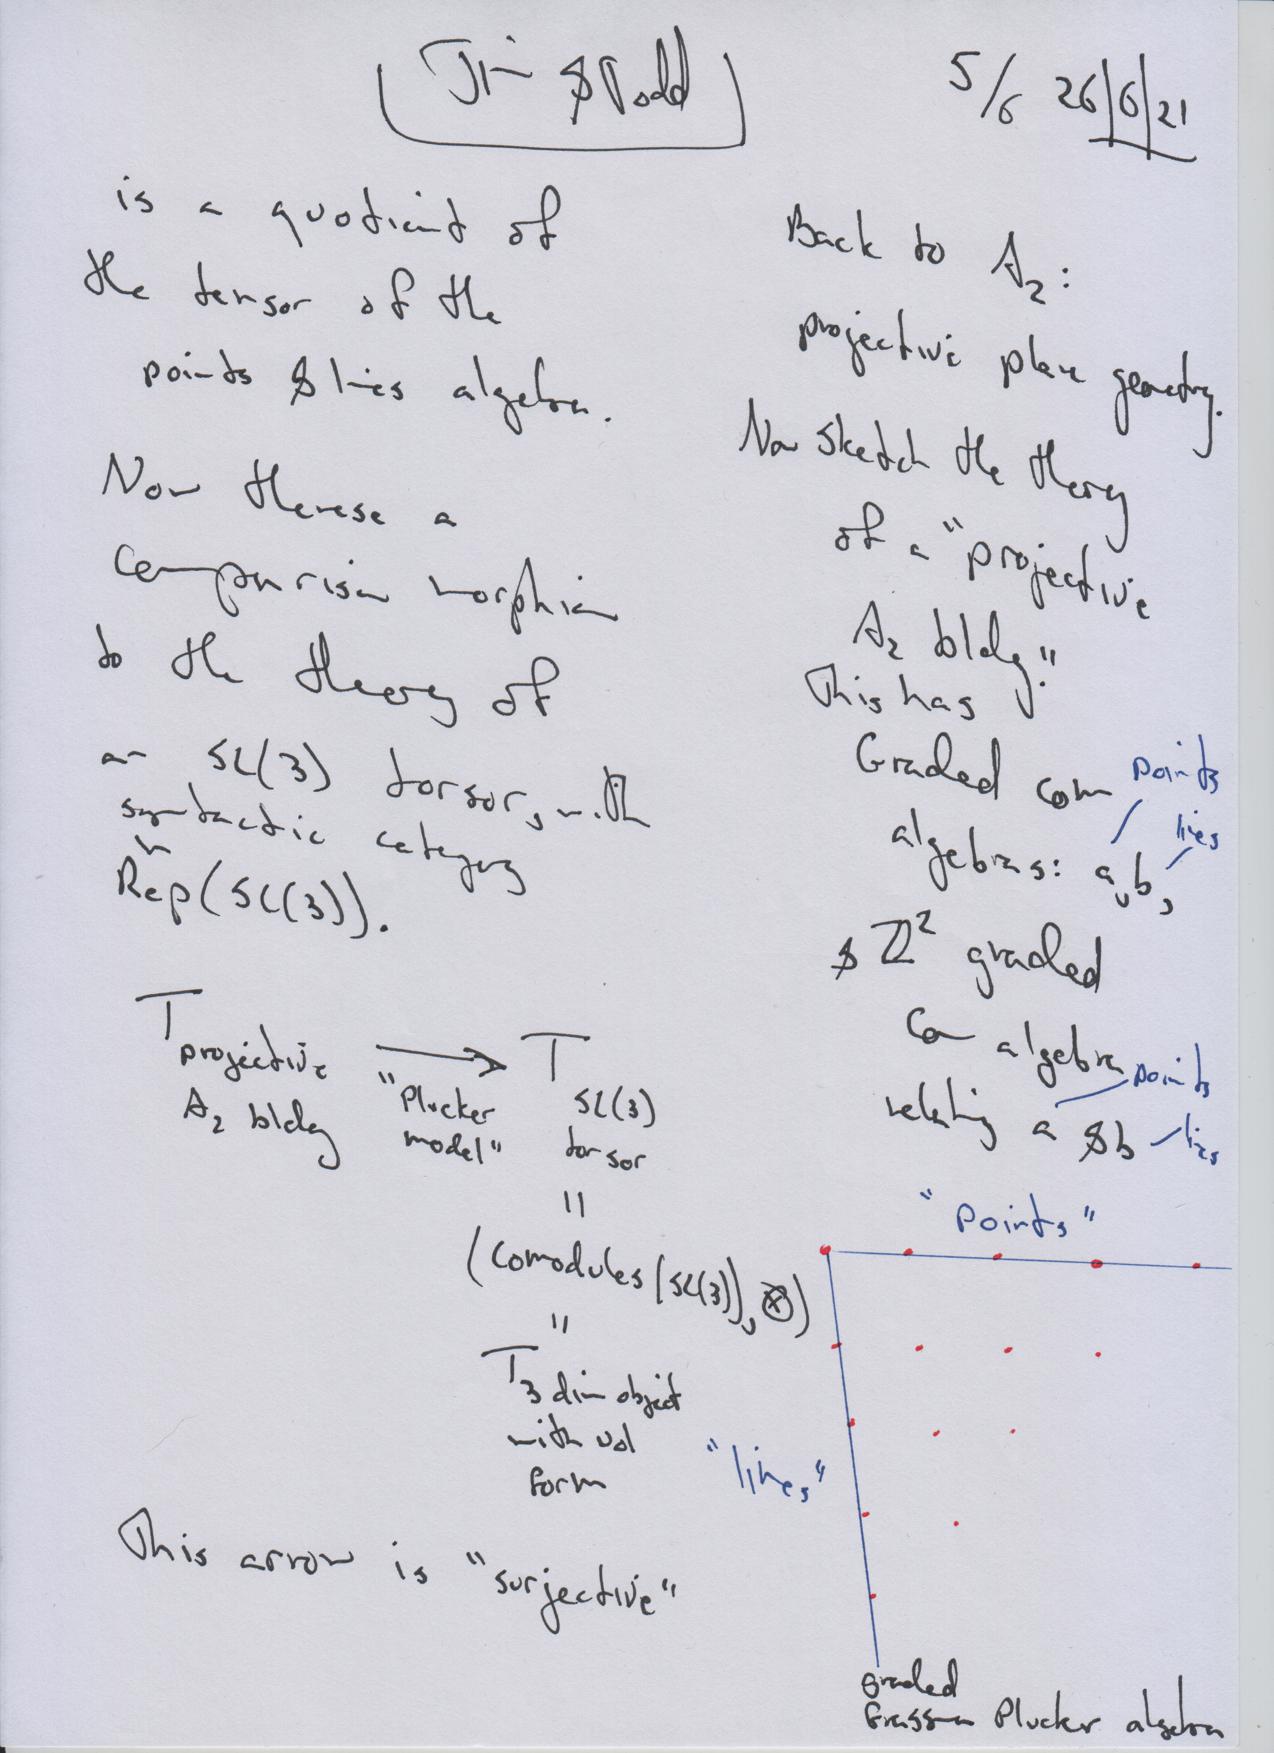 Jim & Todd
5/6 26/6/21
is a quotient of
the tensor of the
points & lines algebra.
Now therese a
comparison morphism
to the theory of
an SL(3) torsor, with
syntactic category
Rep(SL(3)).
T projective A2 bldg → T SL(3) torsor
"Plucker model"
=
(comodules(SL(3)), ⊗)
=
T 3 dim object
with vol
form
This arrow is "surjective"
Back to A2:
projective plane geometry.
Now sketch the theory
of a "projective
A2 bldg".
This has
Graded com
algebras: a, b,
points
lines
& Z² graded
com algebra
relating a & b
points
lines
"points"
"lines"
graded
Grassman Plucker algebra